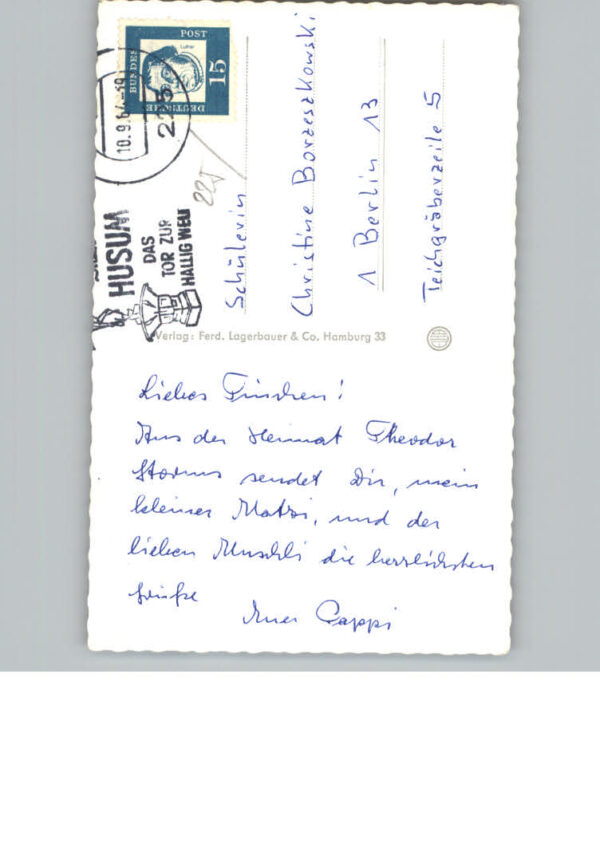 DEUTSCHE
BUNDES
POST
Luther
15
225
HUSUM
DAS
TOR ZUR
HALLIG WELT
225
Schülerin
Christine Borzeszkowski
1 Berlin 13
Teichgräberzeile 5
Verlag: Ferd. Lagerbauer & Co. Hamburg 33
Liebes Tinchen!
Aus der Heimat Theodor
Storms sendet Dir, mein
kleiner Matzi, und der
lieben Muschli die herzlichsten
Grüße
Euer Pappi